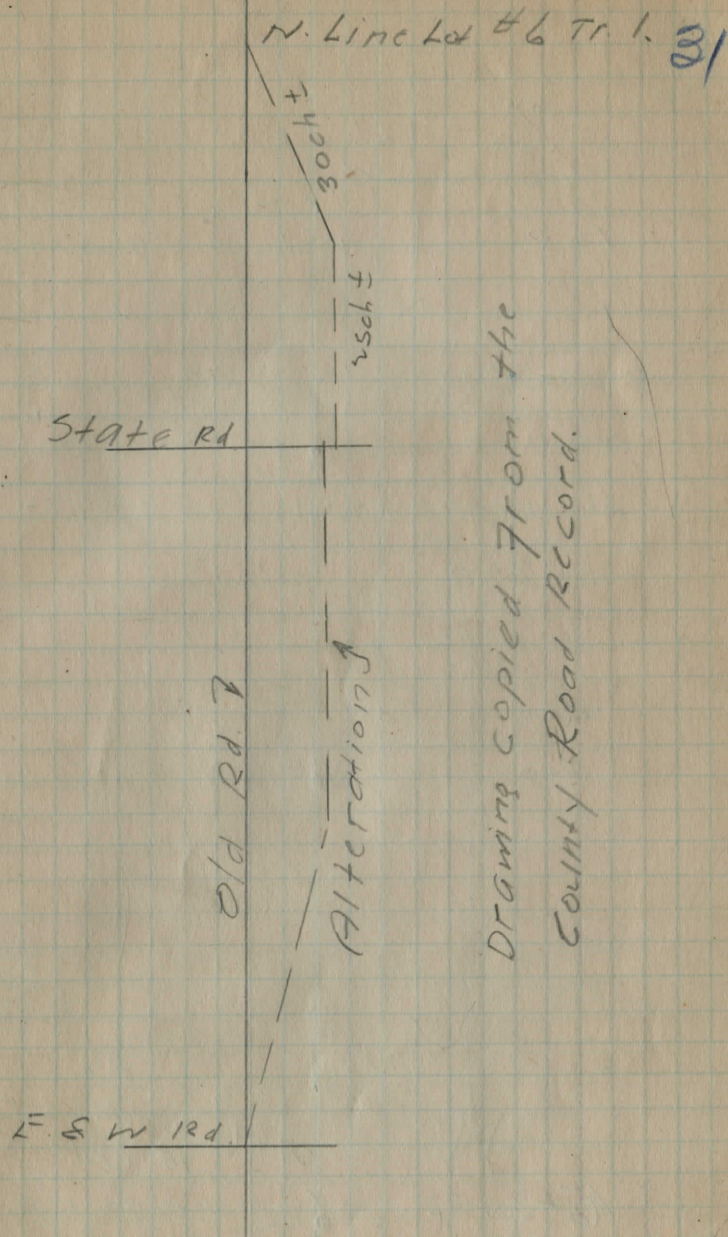 N. Line Lot #6 Tr. 1.
30ch ±
25ch ±
State Rd
Old Rd.
Alteration
Drawing copied from the
County Road Record.
E & W Rd.